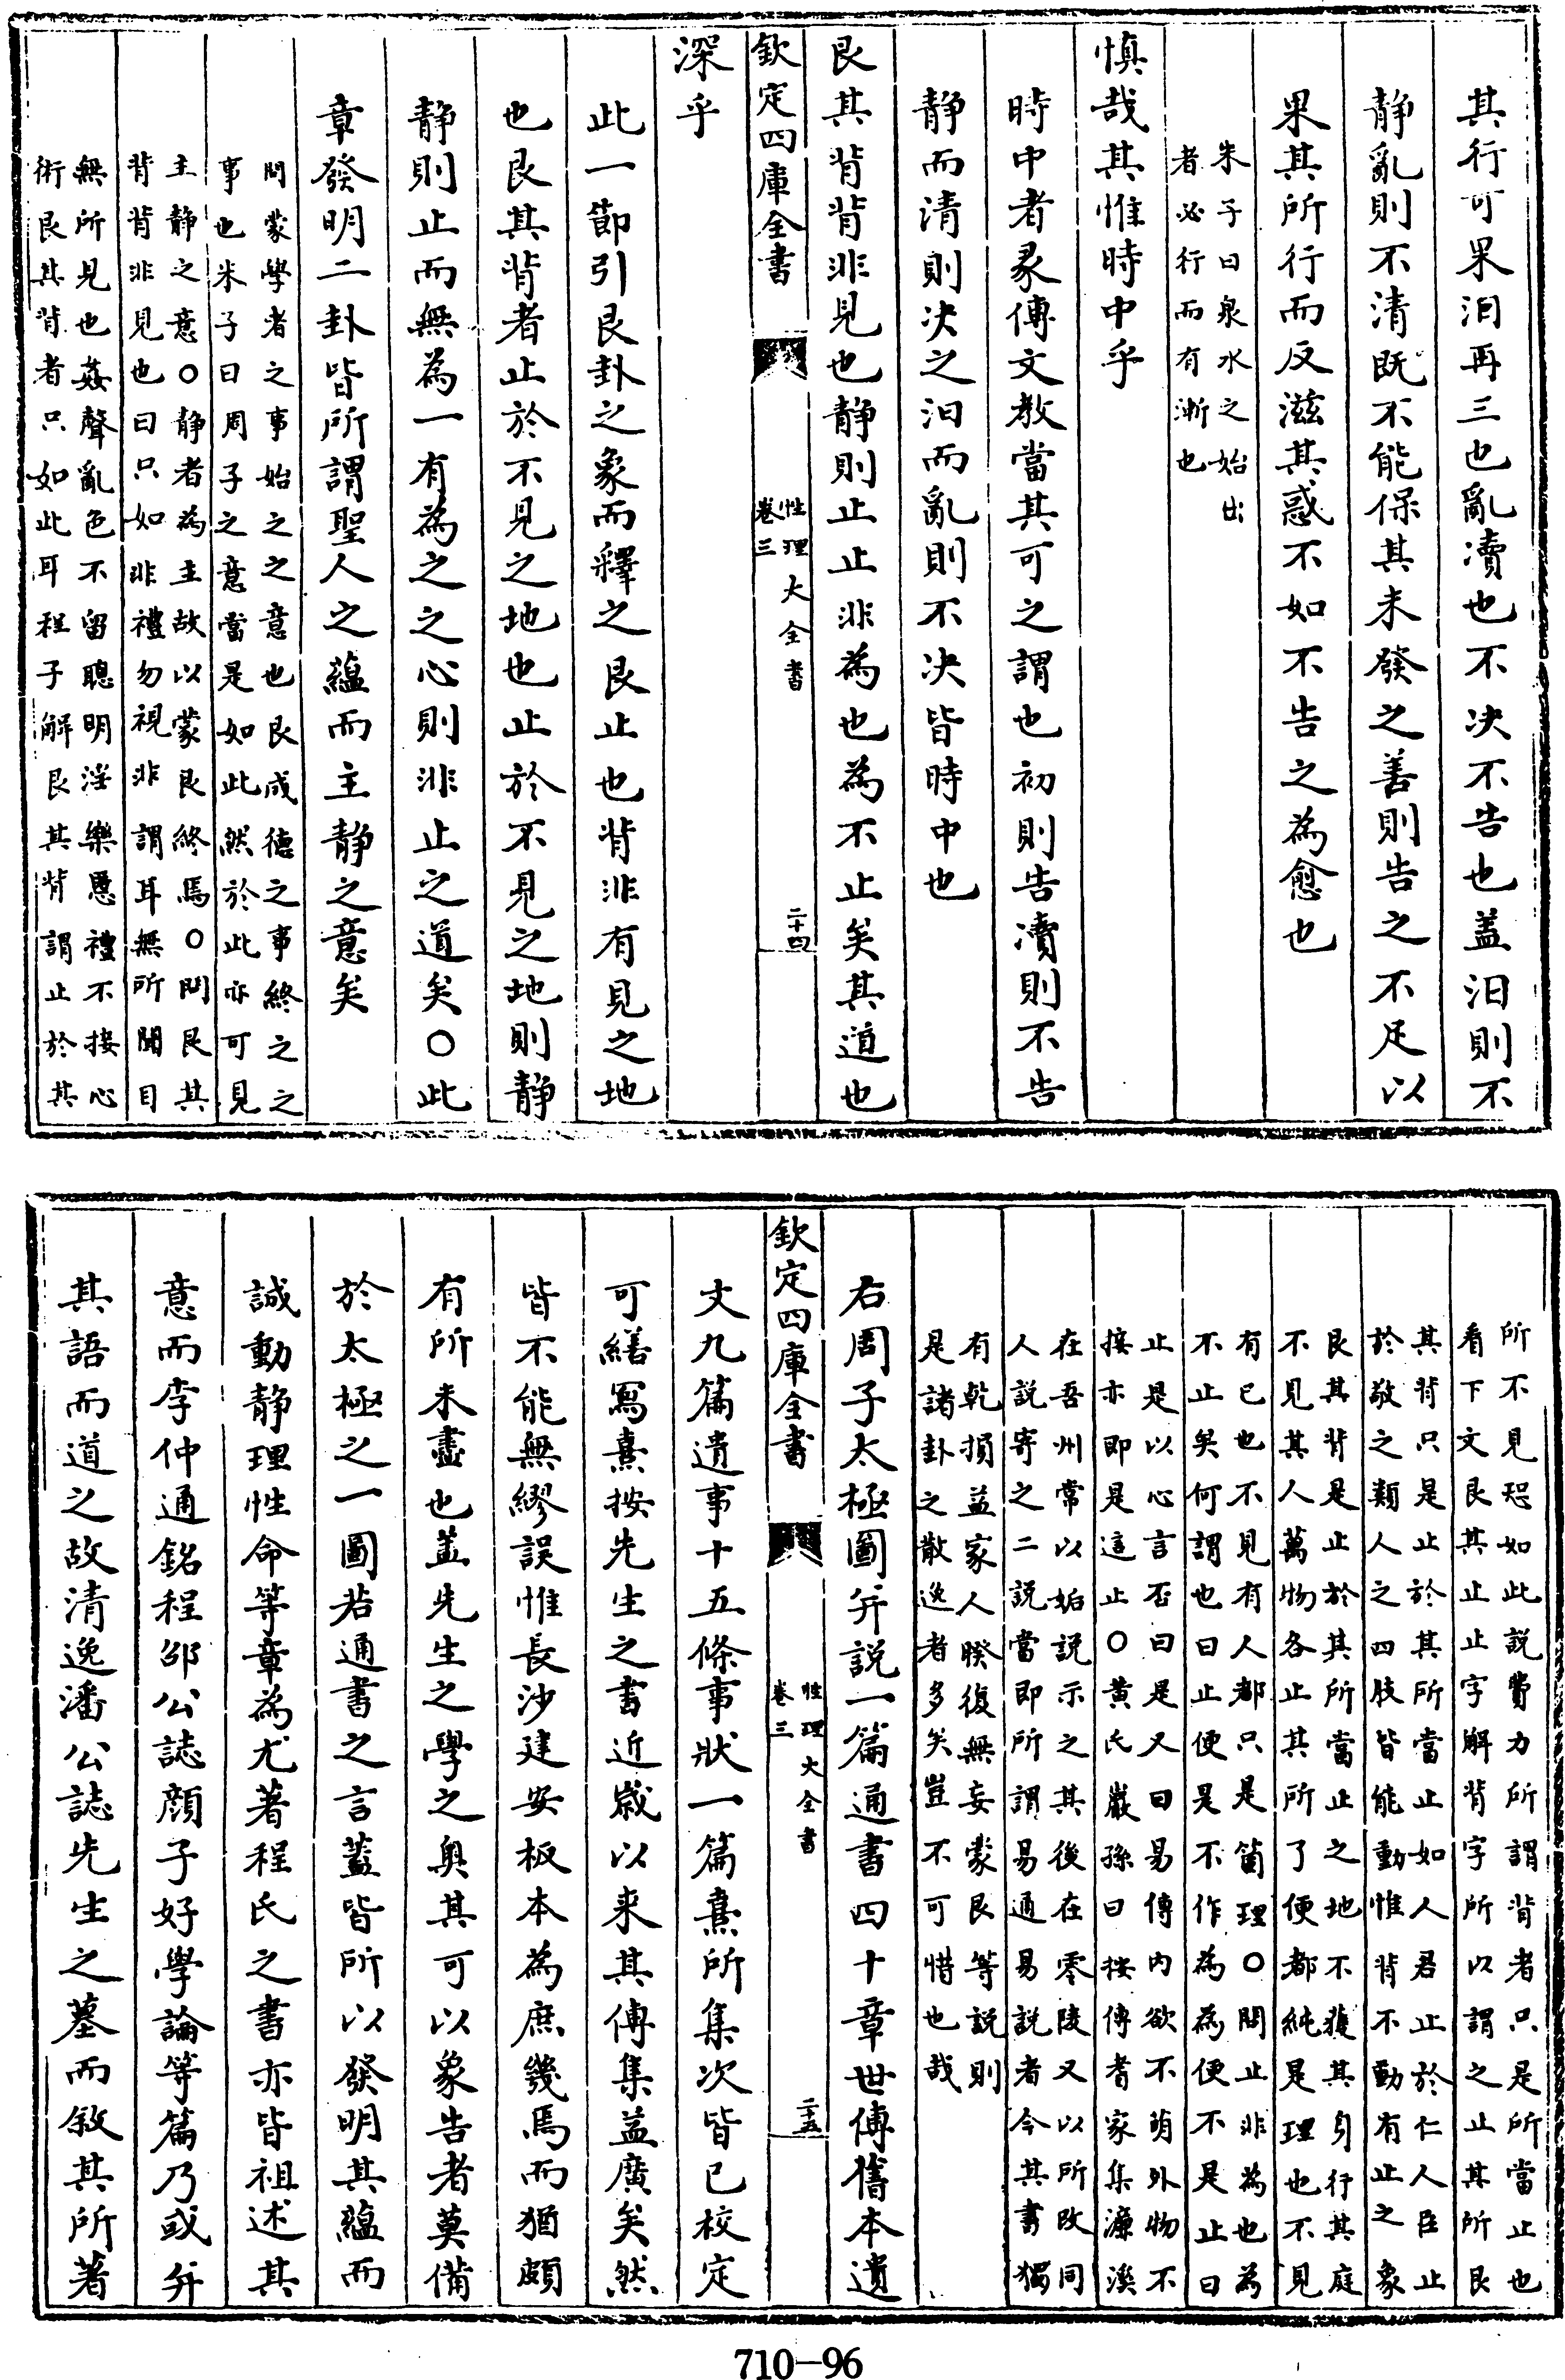 其行可果汨再三也亂瀆也不决不告也盖汨則不
静亂則不清既不能保其未發之善則告之不足以
果其所行而反滋其惑不如不告之為愈也
朱子曰泉水之始出
者必行而有漸也
慎哉其惟時中乎
時中者彖傳文教當其可之謂也初則告瀆則不告
静而清則决之汨而亂則不决皆時中也
艮其背背非見也静則止止非為也為不止矣其道也
欽定四庫全書
性理大全書
卷三
二十四
深乎
此一節引艮卦之象而釋之艮止也背非有見之地
也艮其背者止於不見之地也止於不見之地則静
静則止而無為一有為之之心則非止之道矣○此
章發明二卦皆所謂聖人之蘊而主静之意矣
問蒙學者之事始之之意也艮成德之事終之之
事也朱子曰周子之意當是如此然於此亦可見
主静之意○静者為主故以蒙艮終焉○問艮其
背背非見也曰只如非禮勿視非謂耳無所聞目
無所見也姦聲亂色不留聰明淫樂慝禮不接心
術艮其背者只如此耳程子解艮其背謂止於其
所不見恐如此説費力所謂背者只是所當止也
看下文艮其止止字解背字所以謂之止其所艮
其背只是止於其所當止如人君止於仁人臣止
於敬之類人之四肢皆能動惟背不動有止之象
艮其背是止於其所當止之地不獲其身行其庭
不見其人萬物各止其所了便都純是理也不見
有已也不見有人都只是箇理○問止非為也為
不止矣何謂也曰止便是不作為為便不是止曰
止是以心言否曰是又曰易傳内欲不萌外物不
接亦即是這止○黄氏巖孫曰按傳者家集濂溪
在吾州常以姤説示之其後在零陵又以所改同
人説寄之二説當即所謂易通易説者今其書獨
有乾損益家人睽復無妄蒙艮等説則
是諸卦之散逸者多矣豈不可惜也哉
右周子太極圖并説一篇通書四十章世傳舊本遺
欽定四庫全書
性理大全書
卷三
二十五
文九篇遺事十五條事狀一篇熹所集次皆已校定
可繕寫熹按先生之書近嵗以来其傳集益廣矣然
皆不能無繆誤惟長沙建安板本為庶幾焉而猶頗
有所未盡也盖先生之學之奥其可以象告者莫備
於太極之一圖若通書之言蓋皆所以發明其蘊而
誠動静理性命等章為尤著程氏之書亦皆祖述其
意而李仲通銘程邵公誌顔子好學論等篇乃或并
其語而道之故清逸潘公誌先生之墓而敘其所著
710-96